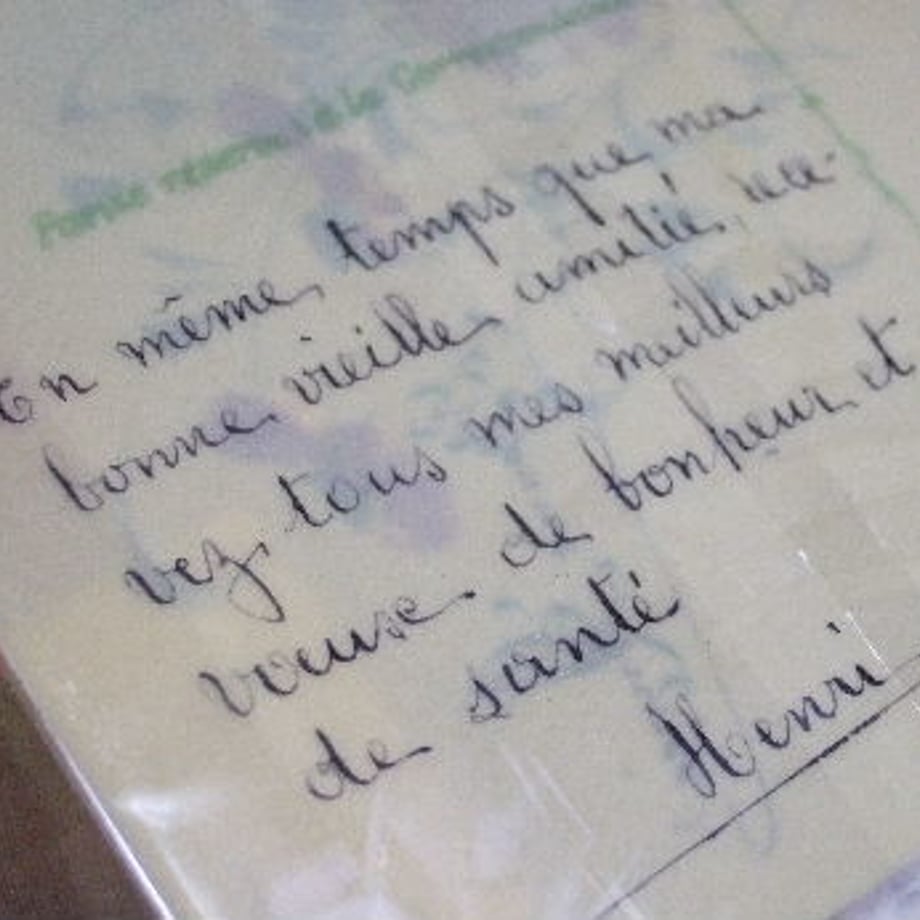 Partie réservée à la Correspondance
En même temps que ma
bonne vieille amitié, rece-
vez tous mes meilleurs
voeuxe de bonheur et
de santé
Henri